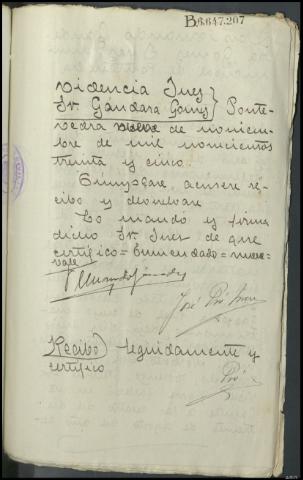 B8.647.207
videncia Juez
Sr. Gándara Gomez } Ponte-
vedra nueve de noviem-
bre de mil novecientos
treinta y cinco.
Cúmplase acuse re-
cibo y devuelvase
Lo mandó y firma
dicho Sr. Juez de que
certifico = Enmendado = nueve =
vale
José
Recibo Seguidamente y
certifico